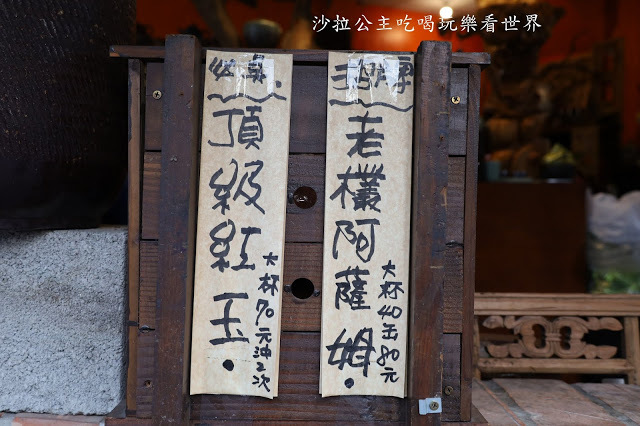 沙拉公主吃喝玩樂看世界
頂級紅玉.
大杯70元沖2次
老欉阿薩姆.
大杯40缶80元